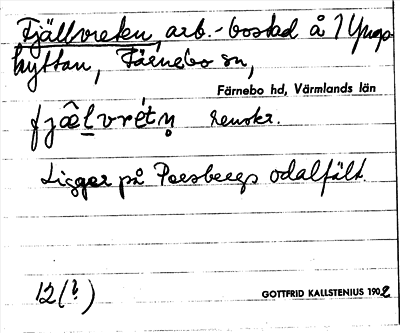 Fjällvreten, arb.-bostad å 1 Yngs-
hyttan, Färnebo sn,
Färnebo hd, Värmlands län
fjæ̂l̲vrétṇ renskr.
Ligger på Persbergs odalfält.
12(?)
GOTTFRID KALLSTENIUS 1902